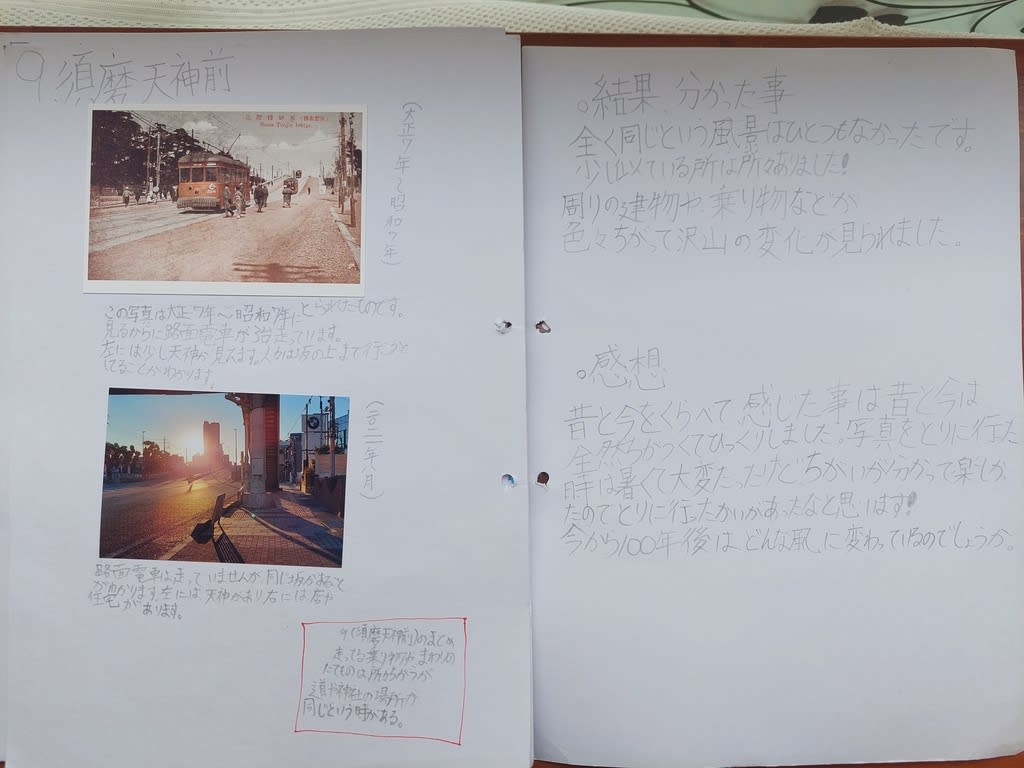 9 須磨天神前
Suma Tenjin
(大正7年~昭和7年)
この写真は大正7年~昭和7年にとられたものです。
見るからに路面電車が3台走っています。
左には少し天神が見えます。人々は坂の上まで行こうと
してることがわかります。
BMW
(二〇二一年八月)
路面電車は走っていませんが、同じ坂があること
が分かります。左には天神があり右には店や
住宅があります。
9(須磨天神前)のまとめ
走ってる乗り物やまわりの
たてものは所々ちがうが
道や神社の場所が
同じという時がある。
。結果、分かった事
全く同じという風景はひとつもなかったです。
少し似ている所は所々ありました!
周りの建物や、乗り物などが
色々ちがって沢山の変化が見られました。
。感想
昔と今をくらべて感じた事は昔と今は
全然ちがくてびっくりしました。写真をとりに行った
時は暑くて大変だったけどちがいが分かって楽しか
たのでとりに行ったかいがあったなと思います!
今から100年後はどんな風に変わっているのでしょうか。